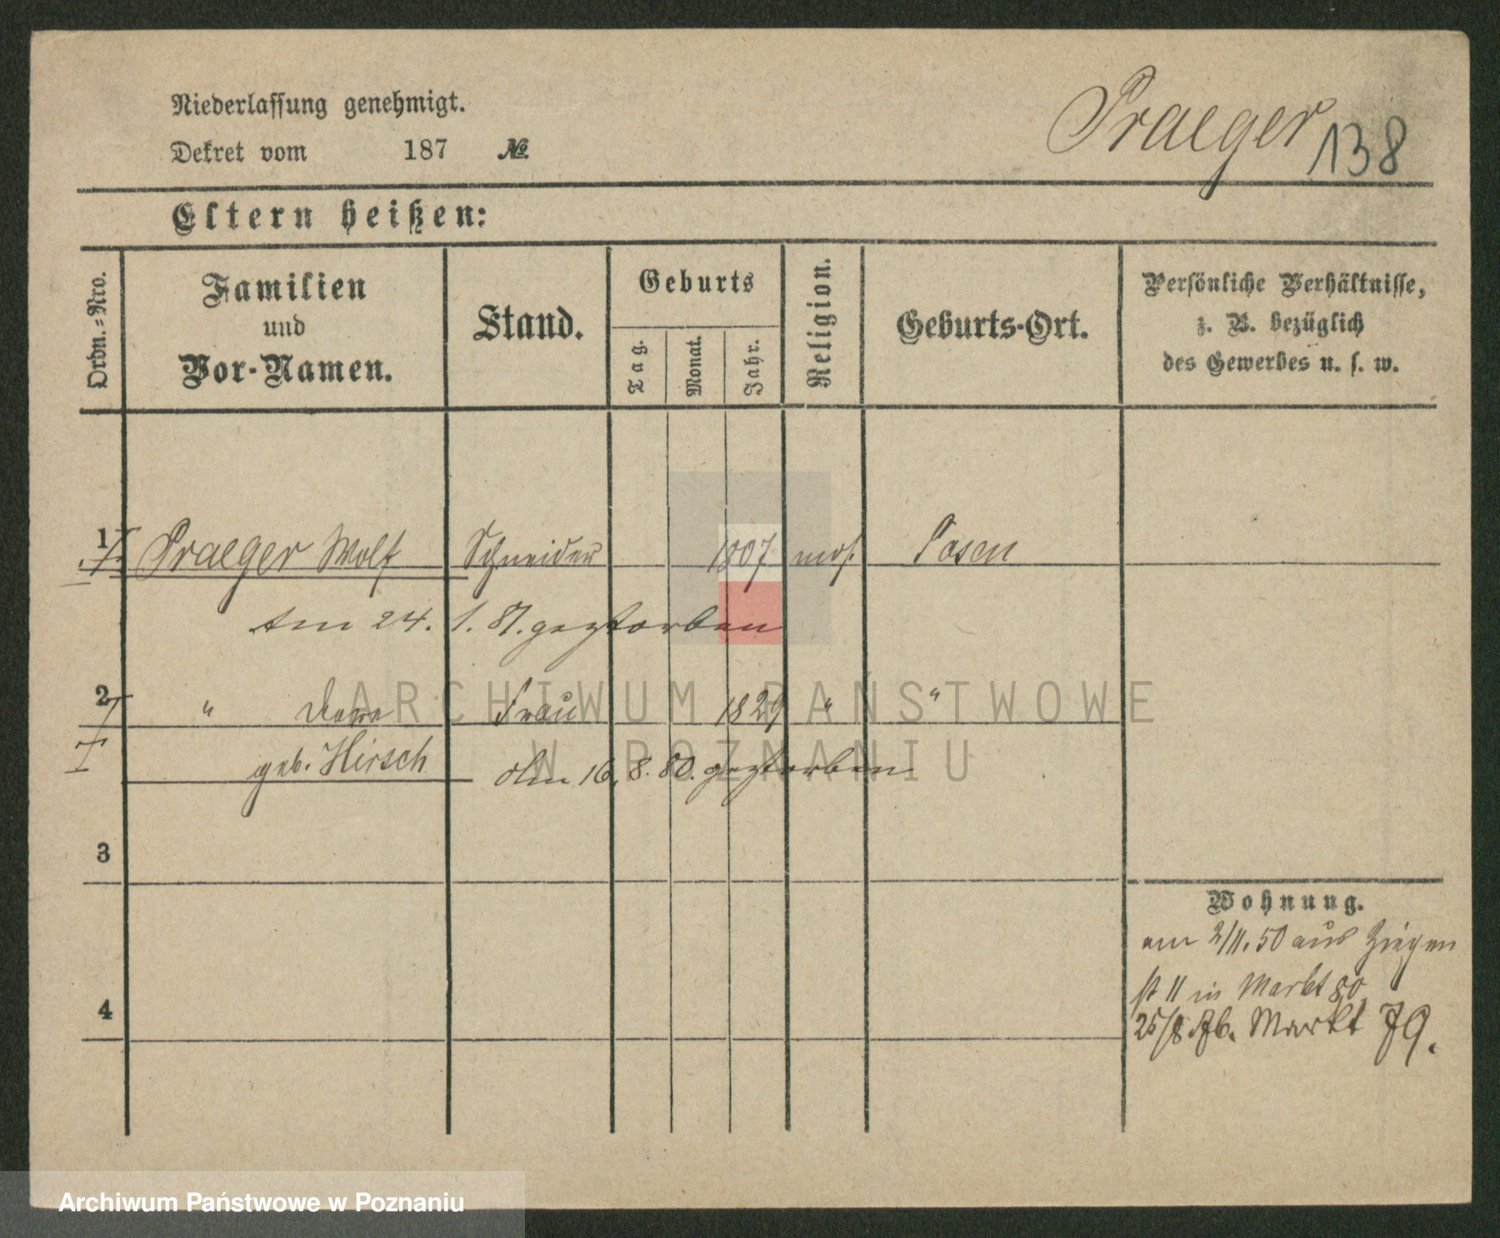 Niederlassung genehmigt.
Dekret vom 187 №
Praeger 138
Eltern heißen:
Ordn.=Nro.
Familien
und
Vor-Namen.
Stand.
Geburts
Tag.
Monat.
Jahr.
Religion.
Geburts-Ort.
Persönliche Verhältnisse,
z. B. bezüglich
des Gewerbes u. s. w.
1 Praeger Wolf Schneider 1807 mos. Posen
Am 24. 1. 81. gestorben
2 " Frau 1829 " "
geb. Hirsch Am 16. 8. 80. gestorben
3
4
Wohnung.
am 2/11. 50 aus Ziegen
st 11 in Markt 80
25/8 76. Markt 79.
ARCHIWUM PAŃSTWOWE
W POZNANIU
Archiwum Państwowe w Poznaniu